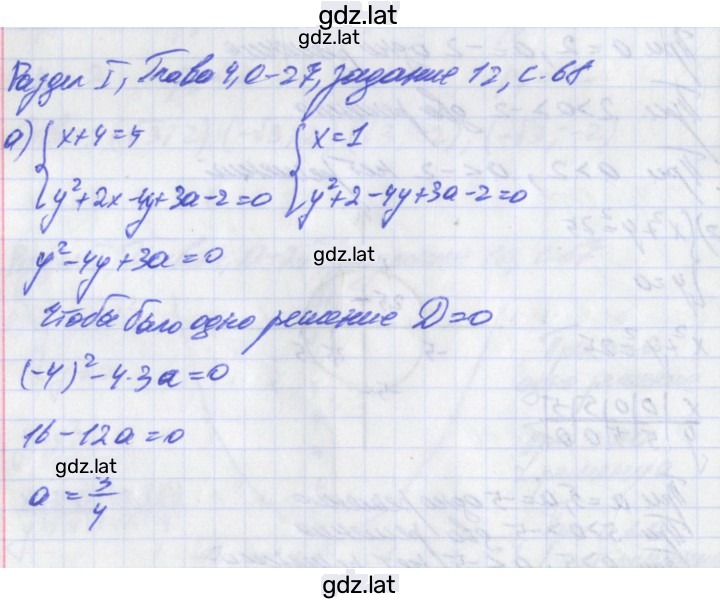 gdz.lat
Раздел I, Глава 4, О-27, задание 12, с. 68
а) { x+4=4 { x=1
y²+2x-4y+3a-2=0 y²+2-4y+3a-2=0
y²-4y+3a=0 gdz.lat
Чтобы было одно решение D=0
(-4)²-4·3a=0
16-12a=0
gdz.lat
a = 3/4
gdz.lat